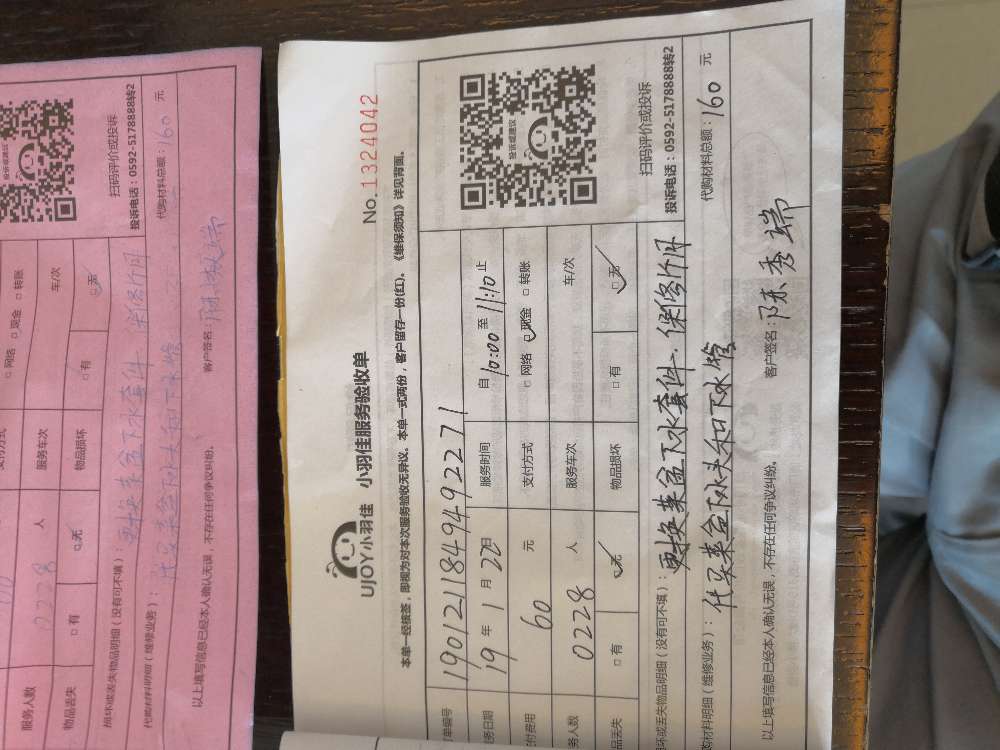 No.1324042
UJOY小羽佳 小羽佳服务验收单
本单一经核签，即视为对本次服务验收无异议。本单一式两份，客户留存一份(红)。《维保须知》详见背面。
单编号 1901211849492271
务日期 19 年 1 月 22日 服务时间 自 10:00 至 11:10 止
付费用 60 元 支付方式 □ 网络 □ 现金 □ 转账
务人数 0228 人 服务车次 车/次
品丢失 □ 有 □ 无 物品损坏 □ 有 □ 无
投诉或建议
扫码评价或投诉
投诉电话：0592-5178888转2
损坏或丢失物品明细（没有可不填）：更换菜盆下水套件，保修个月
购材料明细（维修业务）：代买菜盆下水头和下水管 代购材料总额：160 元
以上填写信息已经本人确认无误，不存在任何争议纠纷。 客户签名：陈秀端
投诉或建议
扫码评价或投诉
投诉电话：0592-5178888转2
支付方式 □ 网络 □ 现金 □ 转账
服务人数 0228 人 服务车次 车/次
物品丢失 □ 有 □ 无 物品损坏 □ 有 □ 无
损坏或丢失物品明细（没有可不填）：更换菜盆下水套件 保修个月
代购材料明细（维修业务）：代买菜盆下水头和下水管 代购材料总额：160 元
以上填写信息已经本人确认无误，不存在任何争议纠纷。 客户签名：陈秀端